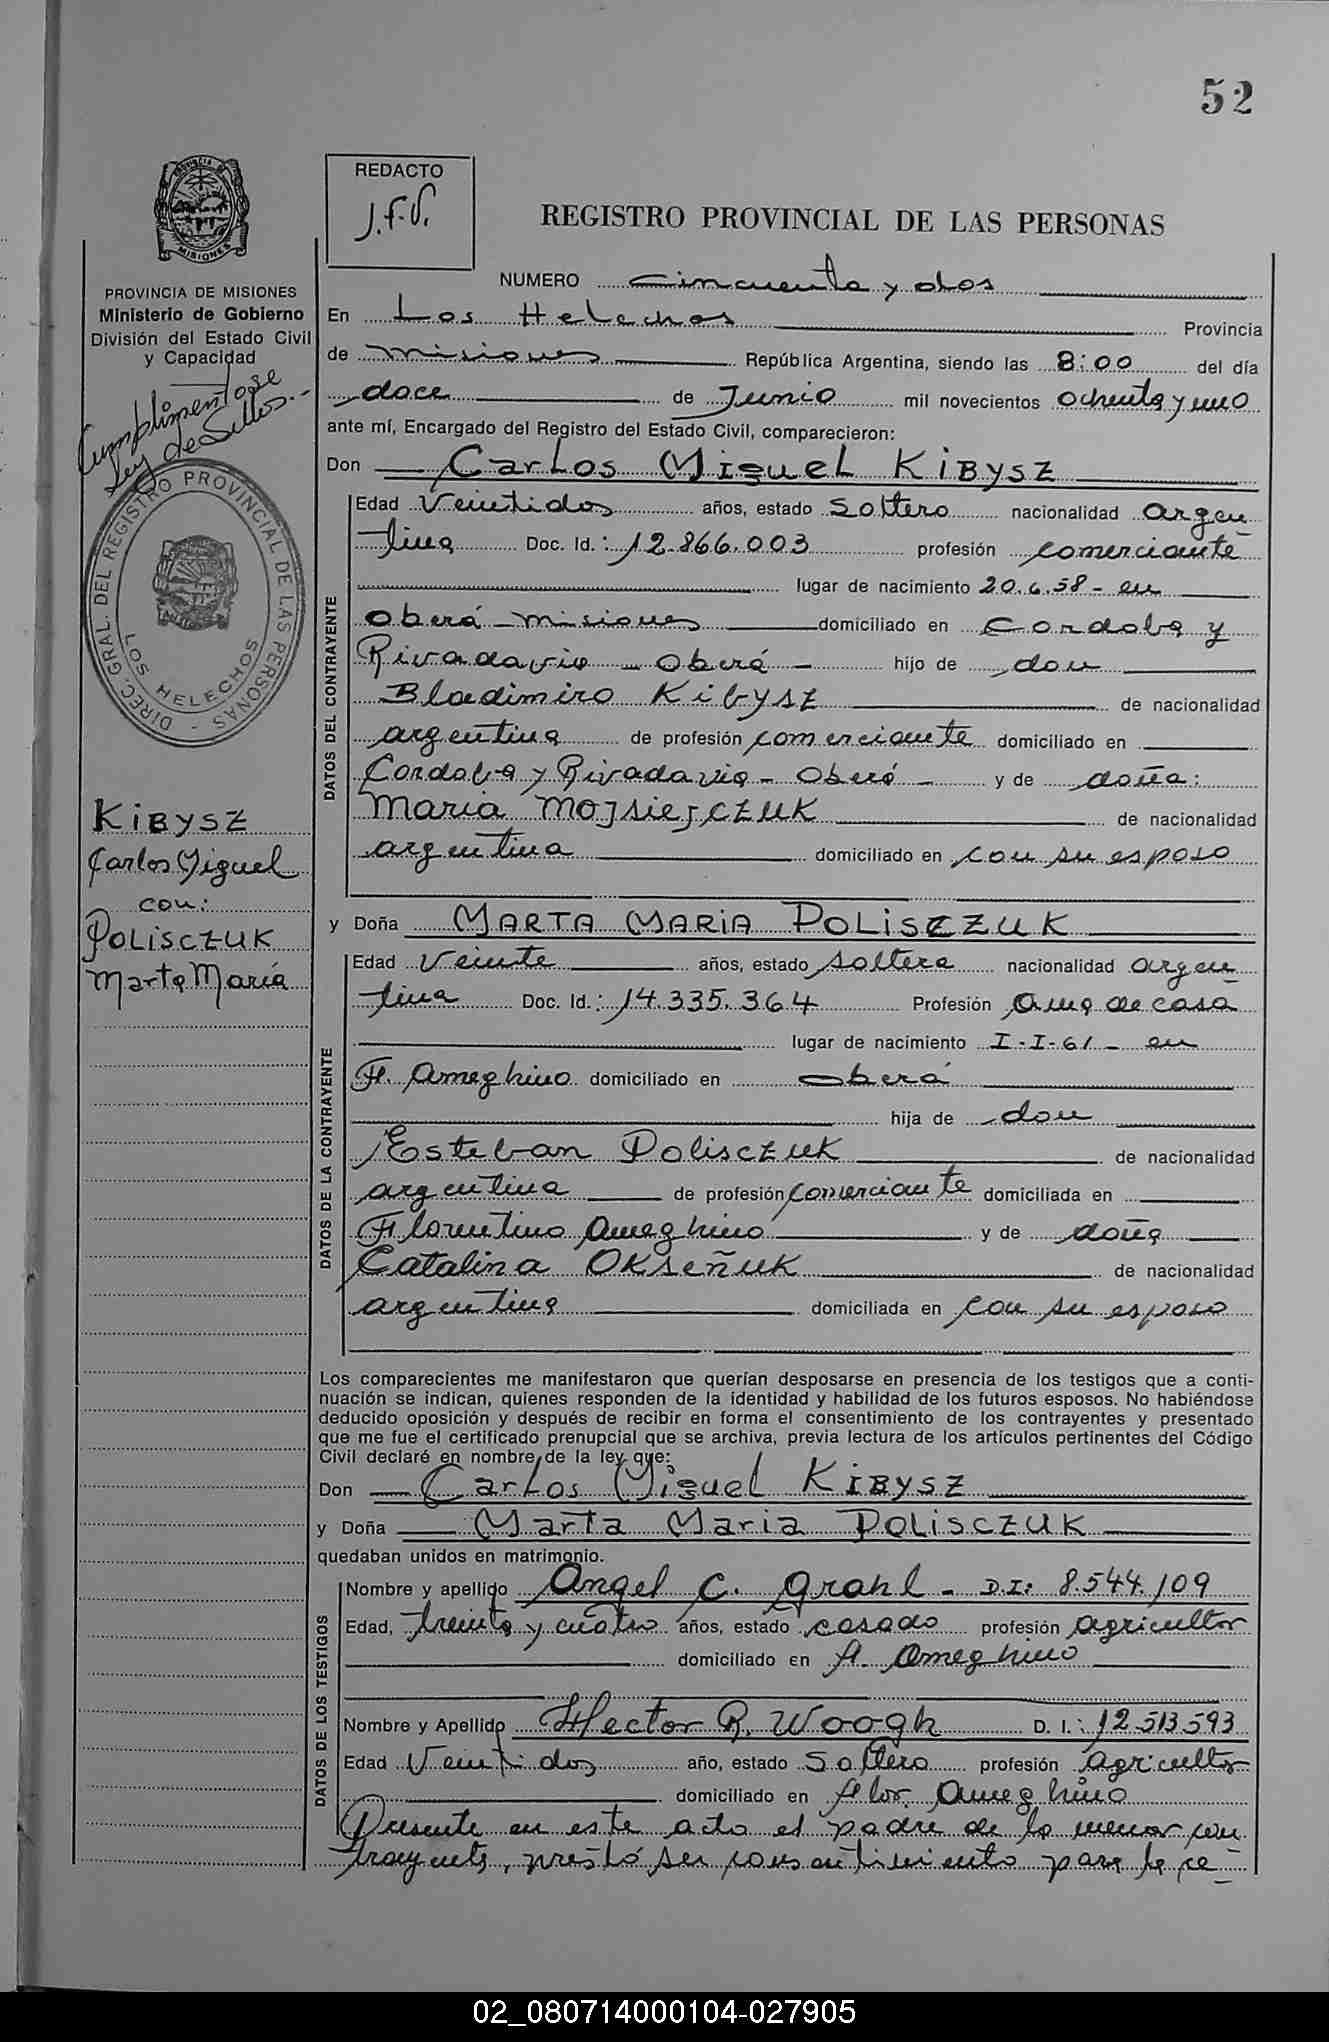 52
REDACTO
J.F.V.
REGISTRO PROVINCIAL DE LAS PERSONAS
PROVINCIA DE MISIONES
Ministerio de Gobierno
División del Estado Civil
y Capacidad
Cumplimentose
Ley de Sellos.-
DIREC. GRAL. DEL REGISTRO PROVINCIAL DE LAS PERSONAS -
LOS HELECHOS
KIBYSZ
Carlos Miguel
con:
POLISCZUK
Marta María
NUMERO cincuenta y dos
En Los Helechos Provincia
de misiones República Argentina, siendo las 8:00 del día
doce de Junio mil novecientos ochenta y uno
ante mí, Encargado del Registro del Estado Civil, comparecieron:
Don Carlos Miguel KIBYSZ
DATOS DEL CONTRAYENTE
Edad Veintidos años, estado soltero nacionalidad argen
tina Doc. Id.: 12.866.003 profesión comerciante
lugar de nacimiento 20.6.58 - en
Oberá - misiones domiciliado en Cordoba y
Rivadavia - Oberá - hijo de don
Bladimiro Kibysz de nacionalidad
argentina de profesión comerciante domiciliado en
Cordoba y Rivadavia - Oberá - y de doña:
Maria MOJSIEJCZUK de nacionalidad
argentina domiciliado en con su esposo
y Doña MARTA MARIA POLISCZUK
DATOS DE LA CONTRAYENTE
Edad Veinte años, estado soltera nacionalidad argen
tina Doc. Id.: 14.335.364 Profesión Ama de casa
lugar de nacimiento I-I-61 - en
F. Ameghino domiciliado en Oberá
hija de don
Esteban Polisczuk de nacionalidad
argentina de profesión comerciante domiciliada en
Florentino Ameghino y de doña
Catalina OKSEÑUK de nacionalidad
argentina domiciliada en con su esposo
Los comparecientes me manifestaron que querían desposarse en presencia de los testigos que a conti-
nuación se indican, quienes responden de la identidad y habilidad de los futuros esposos. No habiéndose
deducido oposición y después de recibir en forma el consentimiento de los contrayentes y presentado
que me fue el certificado prenupcial que se archiva, previa lectura de los artículos pertinentes del Código
Civil declaré en nombre de la ley que:
Don Carlos Miguel KIBYSZ
y Doña Marta Maria POLISCZUK
quedaban unidos en matrimonio.
DATOS DE LOS TESTIGOS
Nombre y apellido Angel C. Grahl - D.I: 8.544.109
Edad, treinta y cuatro años, estado casado profesión agricultor
domiciliado en F. Ameghino
Nombre y Apellido Hector R. Woogk D. I.: 12.513.593
Edad Veintidos año, estado Soltero profesión agricultor
domiciliado en Flor. Ameghino
Presente en este acto el padre de la menor con
trayente, prestó su consentimiento para la ce-
02_080714000104-027905